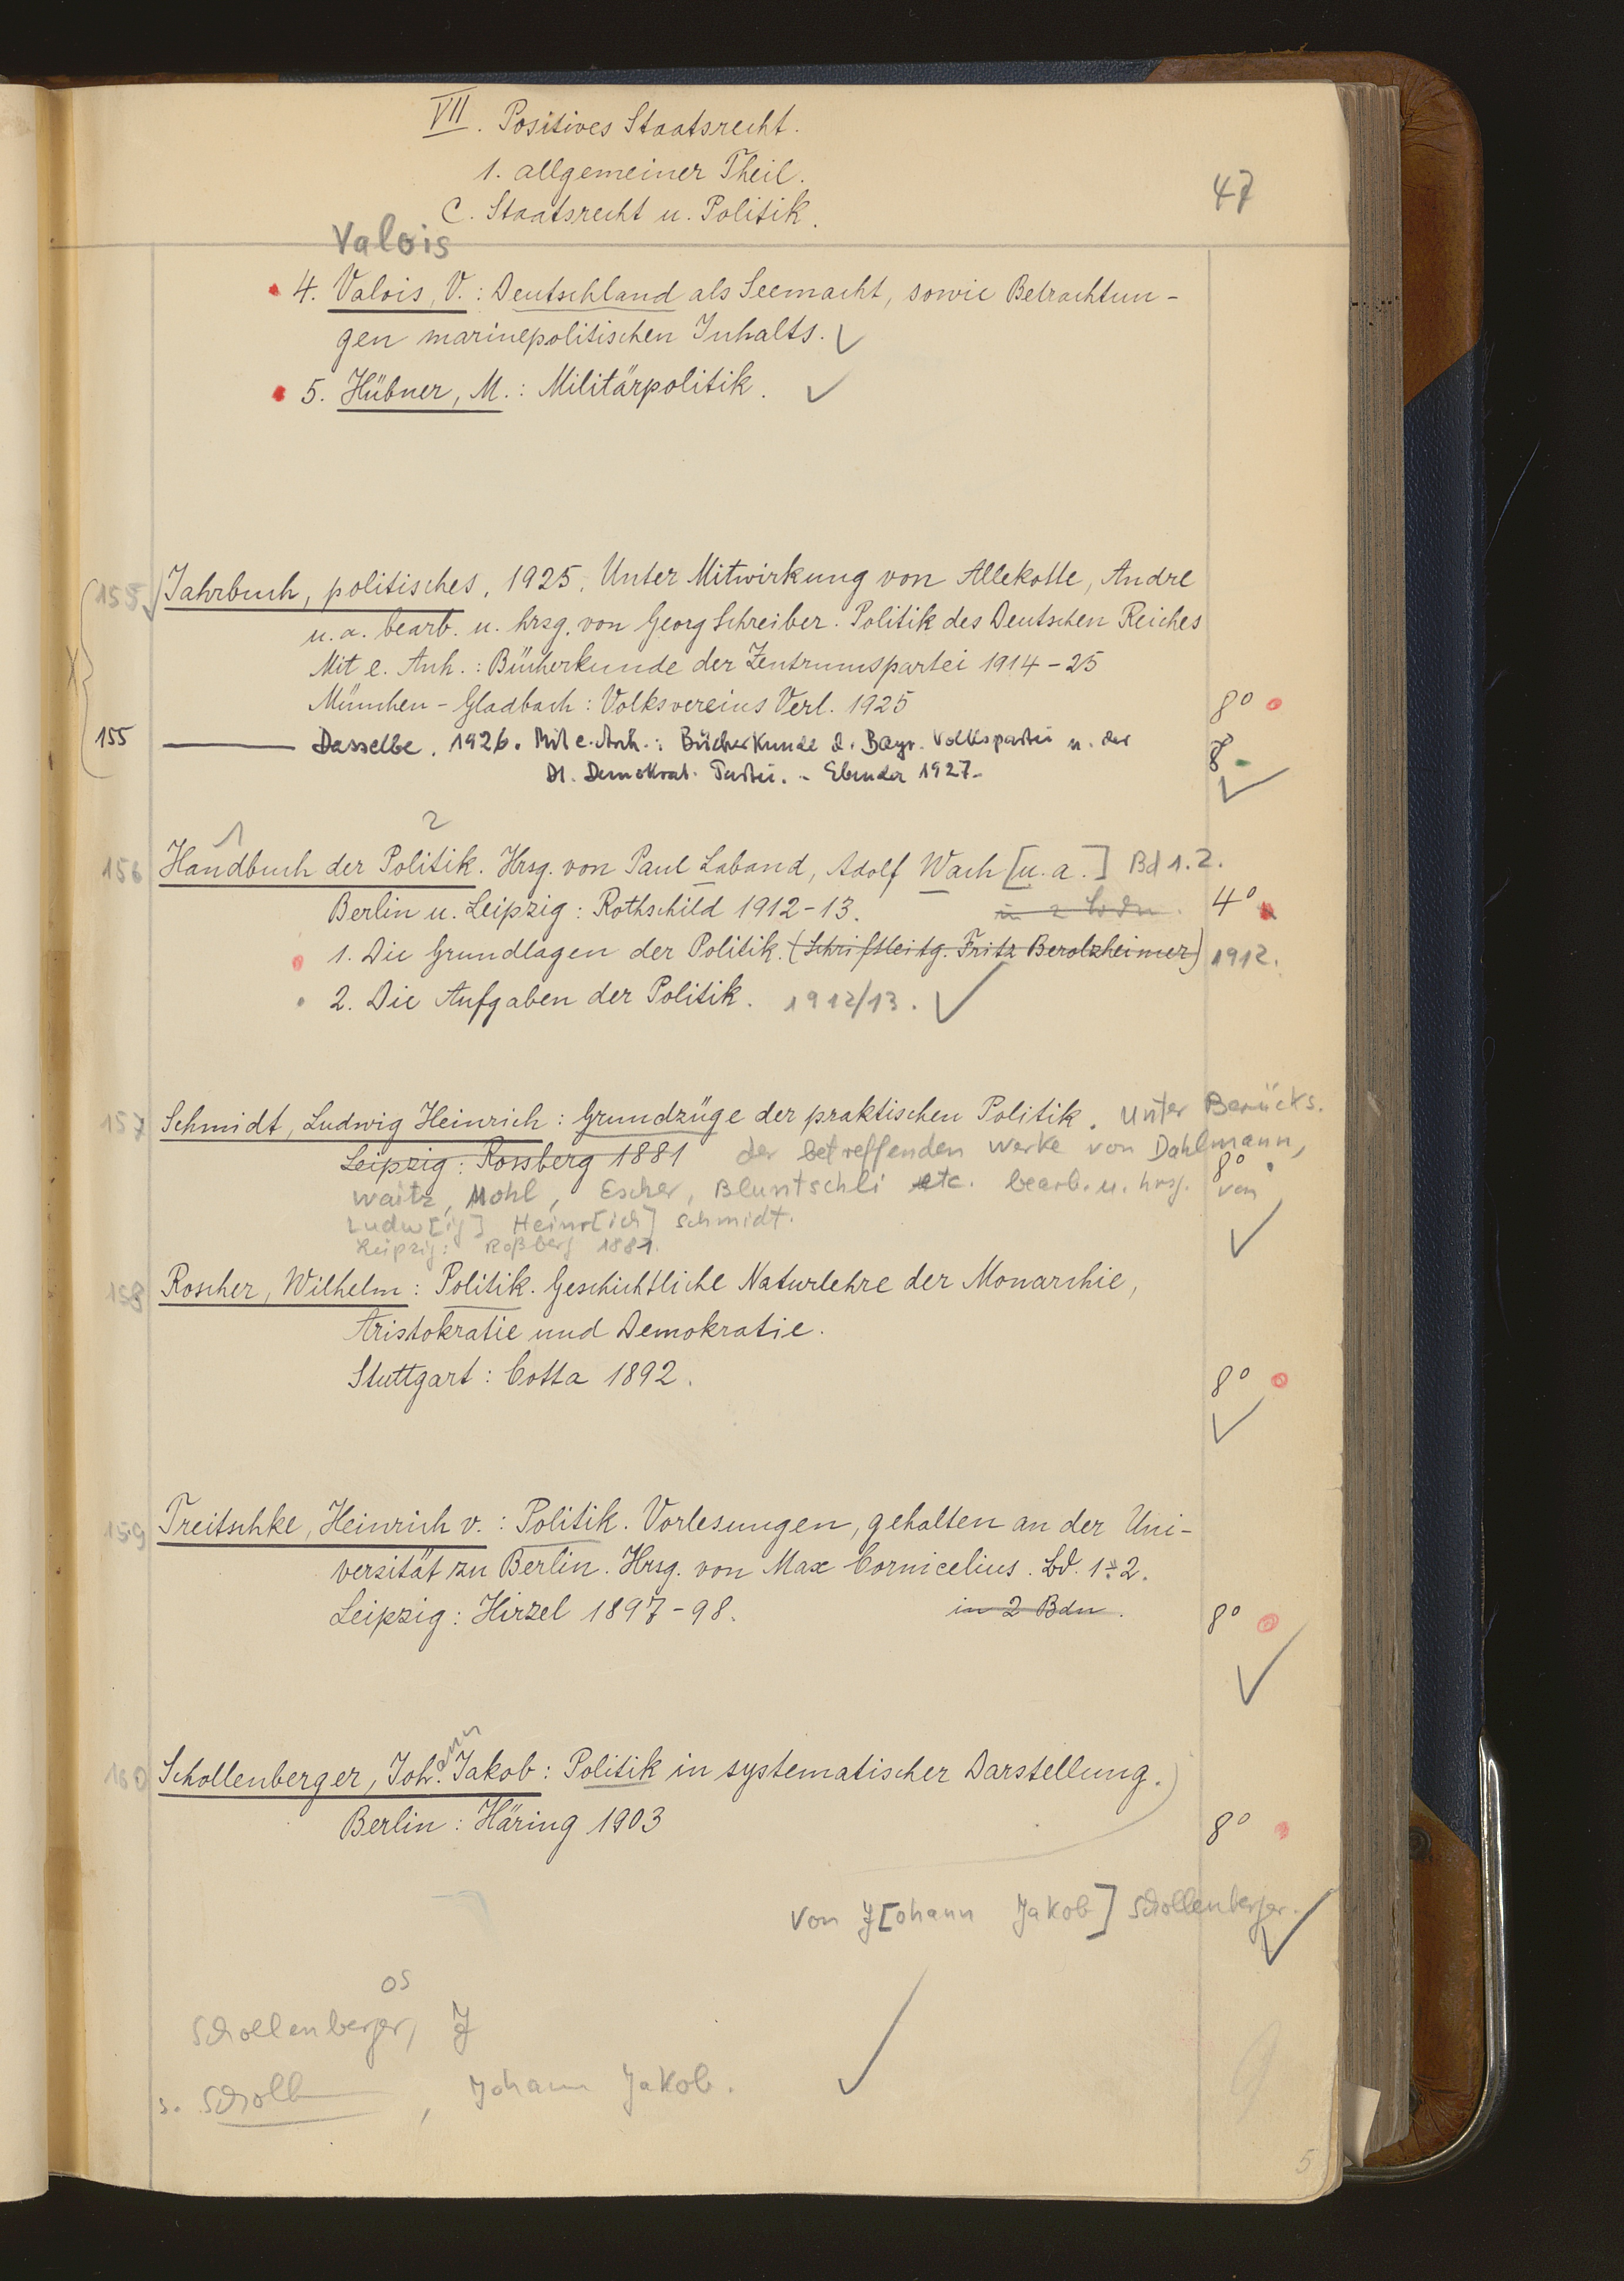 VII. Positives Staatsrecht.
1. allgemeiner Theil.
47
C. Staatsrecht u. Politik.
Valois
4. Valois, V.: Deutschland als Seemacht, sowie Betrachtun-
gen marinepolitischen Inhalts.
5. Hübner, M.: Militärpolitik.
155 Jahrbuch, politisches, 1925. Unter Mitwirkung von Allekotte, Andre
u. a. bearb. u. hrsg. von Georg Schreiber. Politik des Deutschen Reiches
Mit e. Anh.: Bücherkunde der Zentrumspartei 1914-25
München-Gladbach: Volksvereins Verl. 1925 8°
155 Dasselbe. 1926. Mit e. Anh.: Bücherkunde d. Bayr. Volkspartei u. der 8
Dt. Demokrat. Partei. - Ebenda 1927.
1 2
156 Handbuch der Politik. Hrsg. von Paul Laband, Adolf Wach [u. a.] Bd 1.2.
Berlin u. Leipzig: Rothschild 1912-13. in 2 Bdn. 4°
1. Die Grundlagen der Politik. (Schriftleitg. Fritz Berolzheimer) 1912.
2. Die Aufgaben der Politik. 1912/13.
157 Schmidt, Ludwig Heinrich: Grundzüge der praktischen Politik. Unter Berücks.
Leipzig: Rossberg 1881 der betreffenden Werke von Dahlmann,
8°
Waitz, Mohl, Escher, Bluntschli etc. bearb. u. hrsg. von
Ludw[ig] Heinr[ich] Schmidt.
Leipzig: Roßberg 1881.
158 Roscher, Wilhelm: Politik. Geschichtliche Naturlehre der Monarchie,
Aristokratie und Demokratie.
Stuttgart: Cotta 1892. 8°
159 Treitschke, Heinrich v.: Politik. Vorlesungen, gehalten an der Uni-
versität zu Berlin. Hrsg. von Max Cornicelius. Bd. 1-2.
Leipzig: Hirzel 1897-98. in 2 Bdn. 8°
ann
160 Schollenberger, Joh. Jakob: Politik in systematischer Darstellung.
Berlin: Häring 1903 8°
Von J[ohann Jakob] Schollenberger.
os
Schollenberger, J
s. Scholl , Johann Jakob.
5